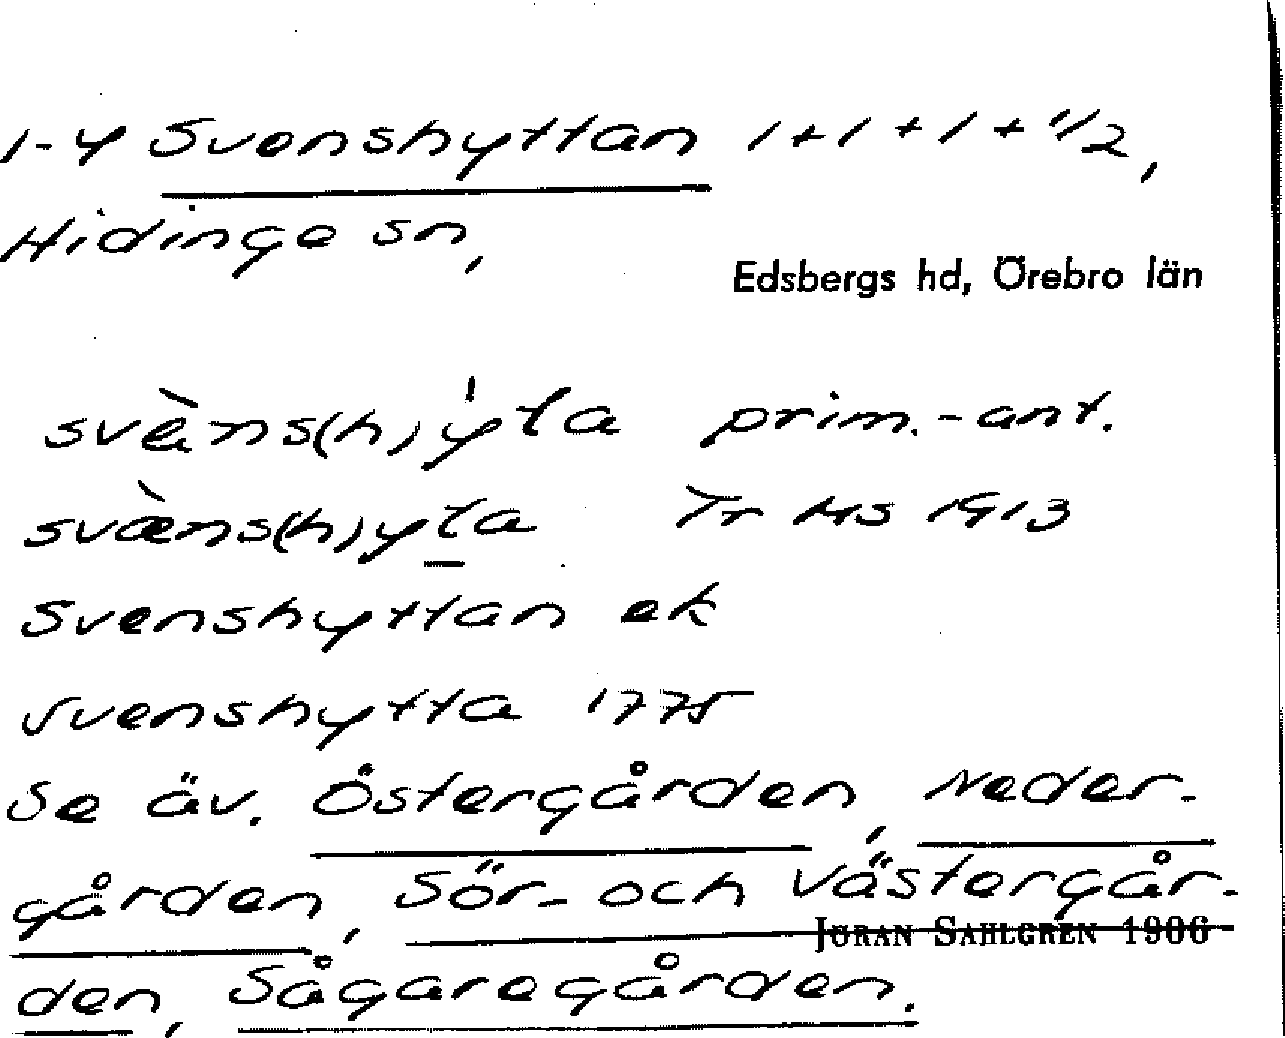 1-4 Svenshyttan 1+1+1+1/2,
Hidinge sn,
Edsbergs hd, Örebro län
svèns(h)y̍ta prim.-ant.
svæ̀ns(h)yta Tr HS 1913
Svenshyttan ek
Svenshytta 1775
Se äv. Östergården, Neder-
gården, Sör- och Västergår-
JÖRAN SAHLGREN 1906
den, Sågaregården.